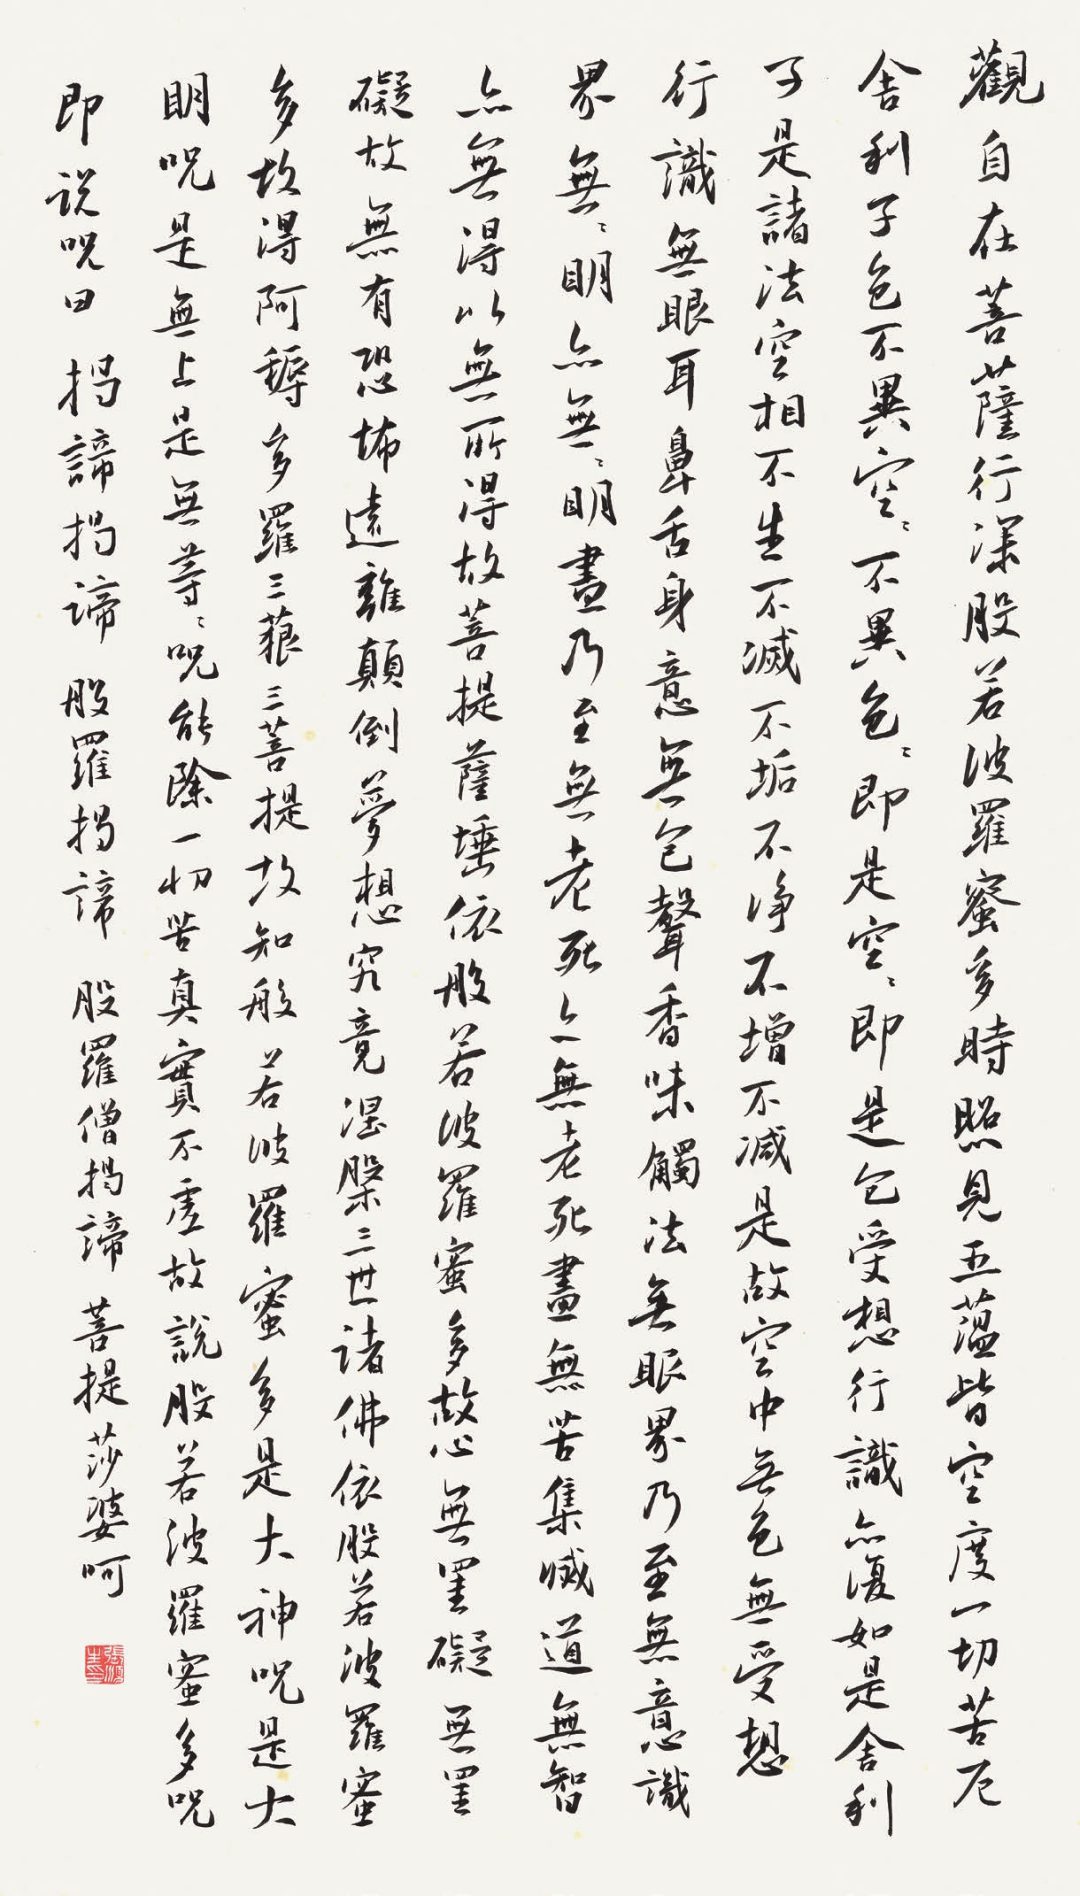 觀自在菩薩行深般若波羅蜜多時照見五蘊皆空度一切苦厄
舍利子色不異空〻不異色〻即是空〻即是色受想行識亦復如是舍利
子是諸法空相不生不滅不垢不净不增不减是故空中无色無受想
行識無眼耳鼻舌身意無色聲香味觸法无眼界乃至無意識
界無〻明亦無〻明盡乃至無老死亦無老死盡無苦集滅道無智
亦無得以無所得故菩提薩埵依般若波羅蜜多故心無罣礙無罣
礙故無有恐怖遠離顛倒夢想究竟涅槃三世諸佛依般若波羅蜜
多故得阿耨多羅三藐三菩提故知般若波羅蜜多是大神咒是大
明咒是無上是無等〻咒能除一切苦真實不虛故說般若波羅蜜多咒
即说咒曰 揭諦揭谛 般羅揭諦 般羅僧揭諦 菩提莎婆呵